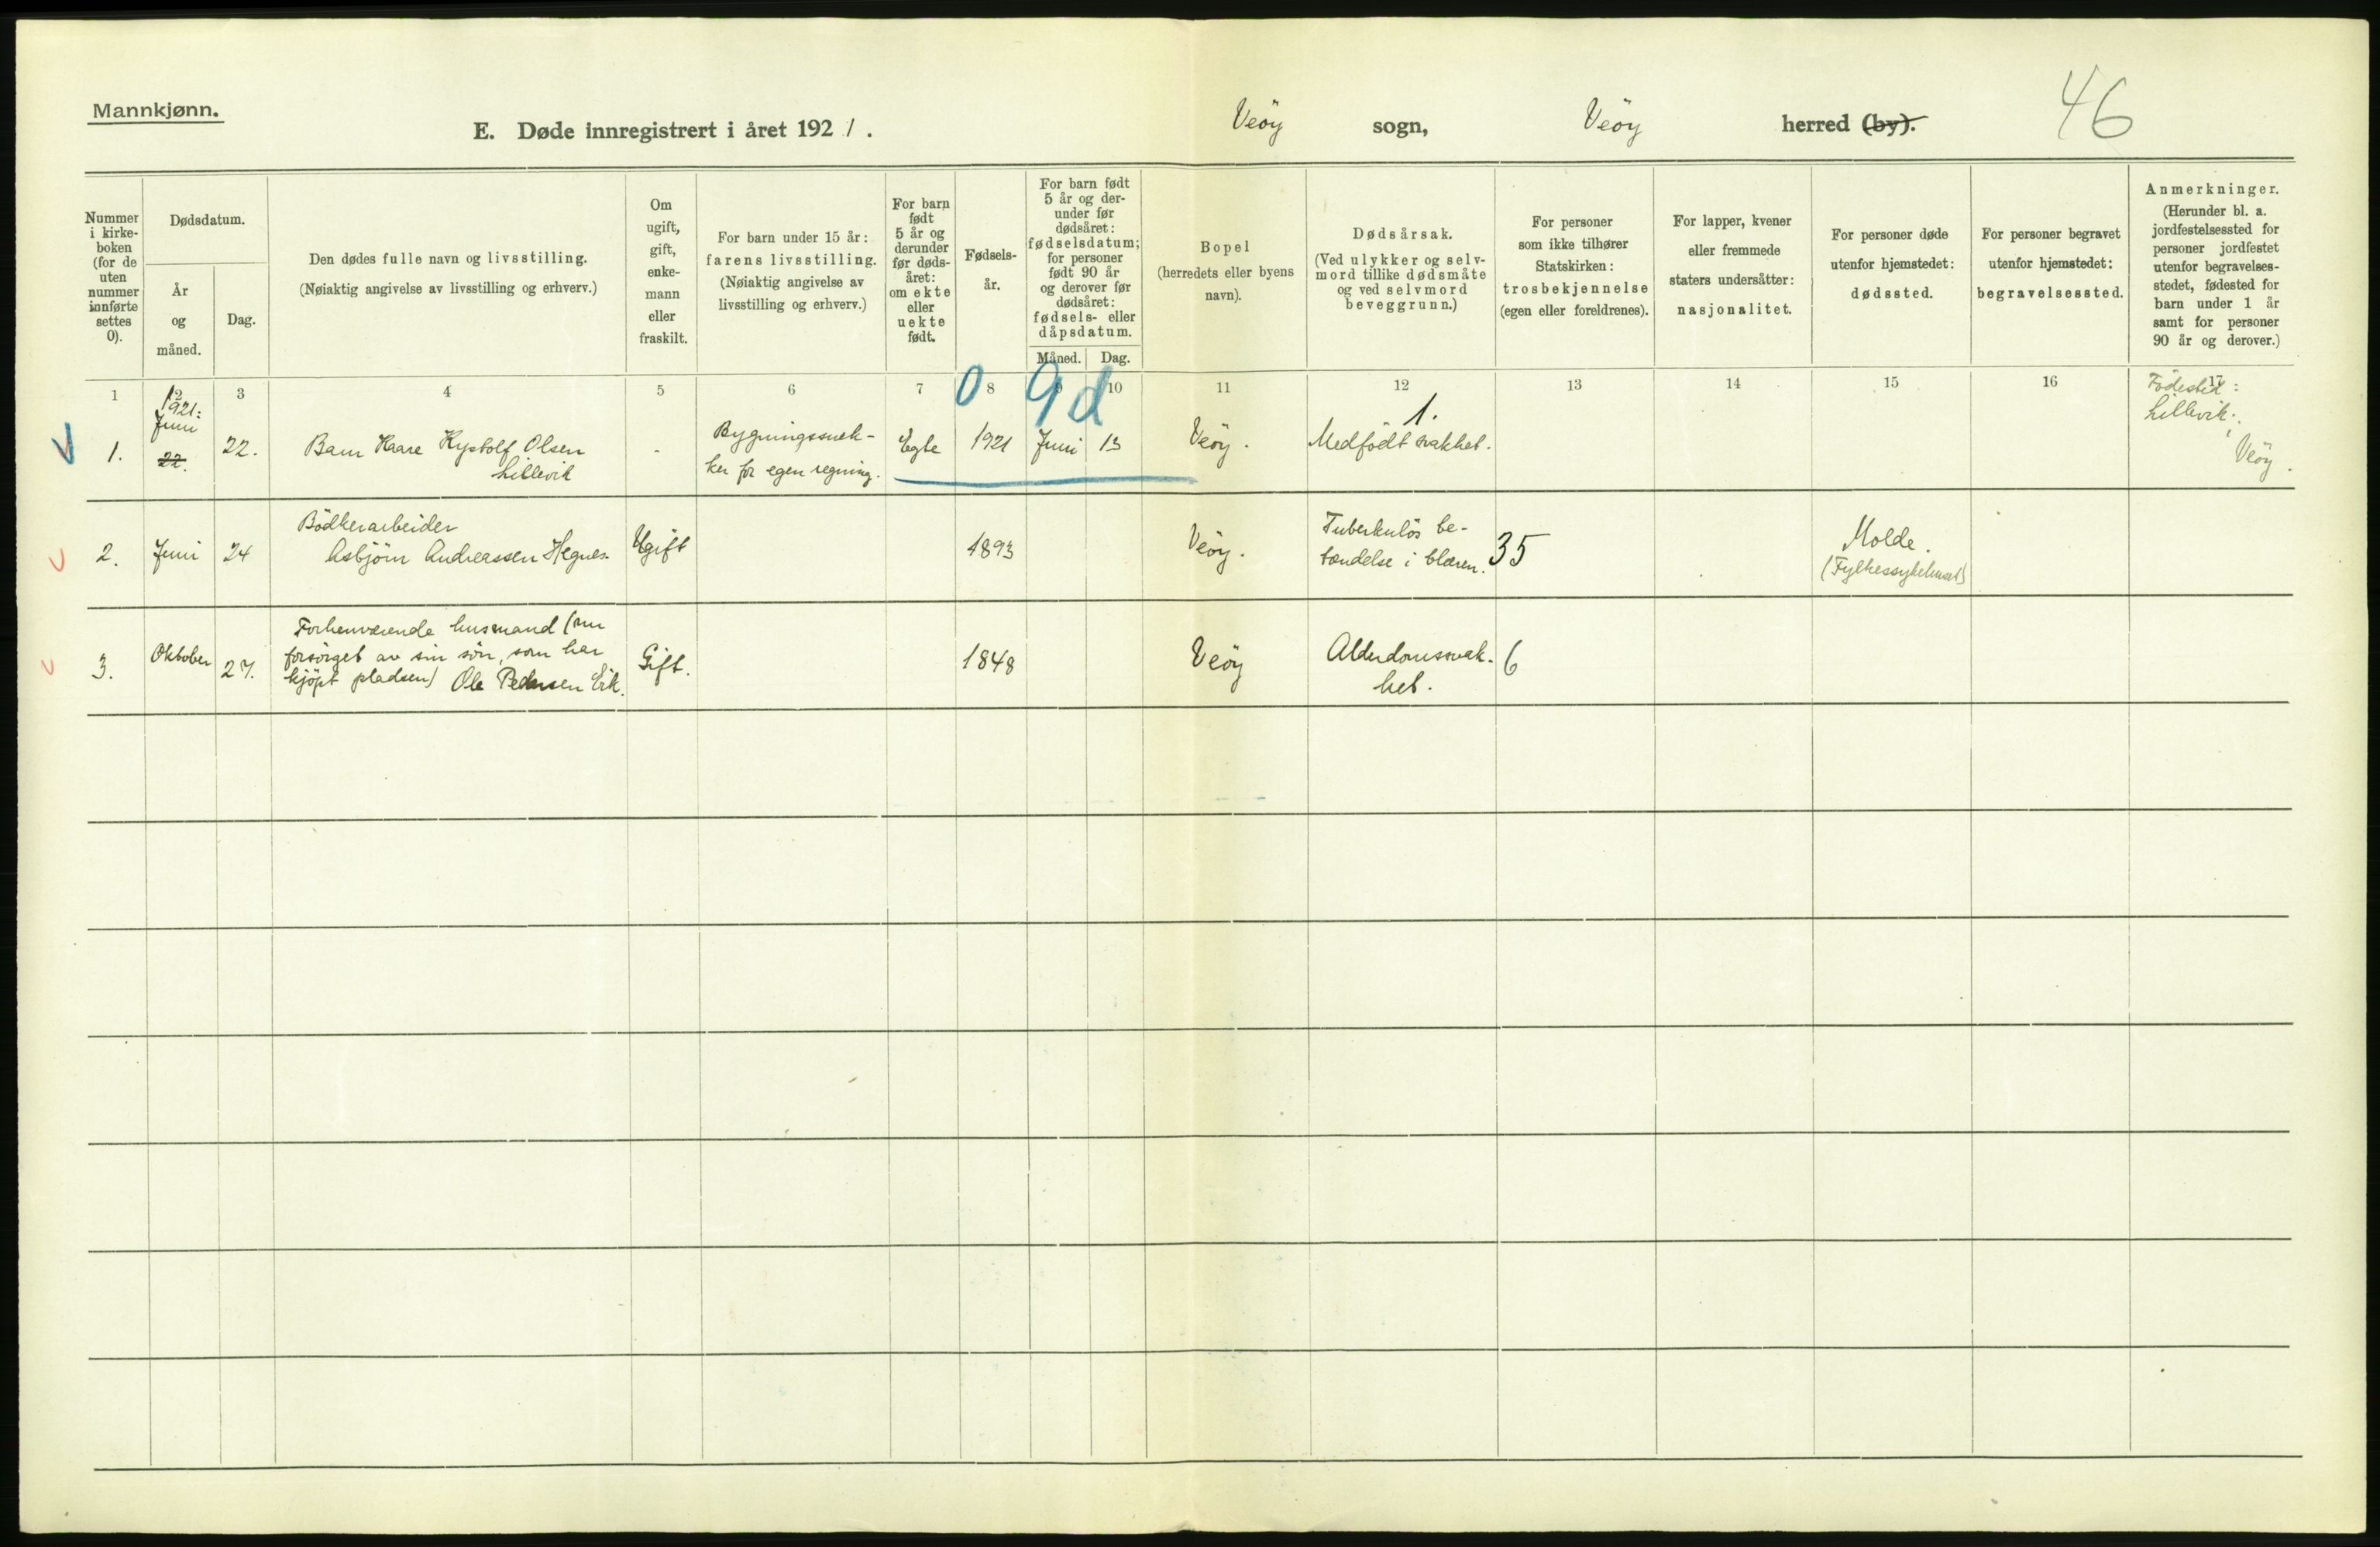 Mannkjønn.
E. Døde innregistrert i året 1921.
Veöy sogn, Veöy herred (by).
46
Nummer
i kirke-
boken
(for de
uten
nummer
innførte
settes
0).
Dødsdatum.
År
og
måned.
Dag.
Den dødes fulle navn og livsstilling.
(Nøiaktig angivelse av livsstilling og erhverv.)
Om
ugift,
gift,
enke-
mann
eller
fraskilt.
For barn under 15 år:
farens livsstilling.
(Nøiaktig angivelse av
livsstilling og erhverv.)
For barn
født
5 år og
derunder
før døds-
året:
om ekte
eller
uekte
født.
Fødsels-
år.
For barn født
5 år og der-
under før
dødsåret:
fødselsdatum;
for personer
født 90 år
og derover før
dødsåret:
fødsels- eller
dåpsdatum.
Måned. Dag.
Bopel
(herredets eller byens
navn).
Dødsårsak.
(Ved ulykker og selv-
mord tillike dødsmåte
og ved selvmord
beveggrunn.)
For personer
som ikke tilhører
Statskirken:
trosbekjennelse
(egen eller foreldrenes).
For lapper, kvener
eller fremmede
staters undersåtter:
nasjonalitet.
For personer døde
utenfor hjemstedet:
dødssted.
For personer begravet
utenfor hjemstedet:
begravelsessted.
Anmerkninger.
(Herunder bl. a.
jordfestelsessted for
personer jordfestet
utenfor begravelses-
stedet, fødested for
barn under 1 år
samt for personer
90 år og derover.)
1 2 3 4 5 6 7 8 9 10 11 12 13 14 15 16 17
0 9 d
1.
1921:
Juni
22.
22.
Barn Kaare Olsen
Lillevik
-
Bygningssnek-
ker for egen regning.
Egte
1921
Juni
13
Veöy.
1.
Medfödt svakhet.
Födested:
Lillevik,
Veöy.
2.
Juni
24
Bödkerarbeider
Asbjörn Andreassen Hegnes.
Ugift
1893
Veöy.
Tuberkulös be-
tændelse i blæren.
35
Molde.
(Fylkessykehuset)
3.
Oktober
27.
Forhenværende husmand (nu
forsörget av sin sön, som har
kjöpt pladsen) Ole Pedersen Eik.
Gift.
1848
Veöy
Alderdomssvak-
het.
6